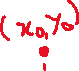 (x0, y0)